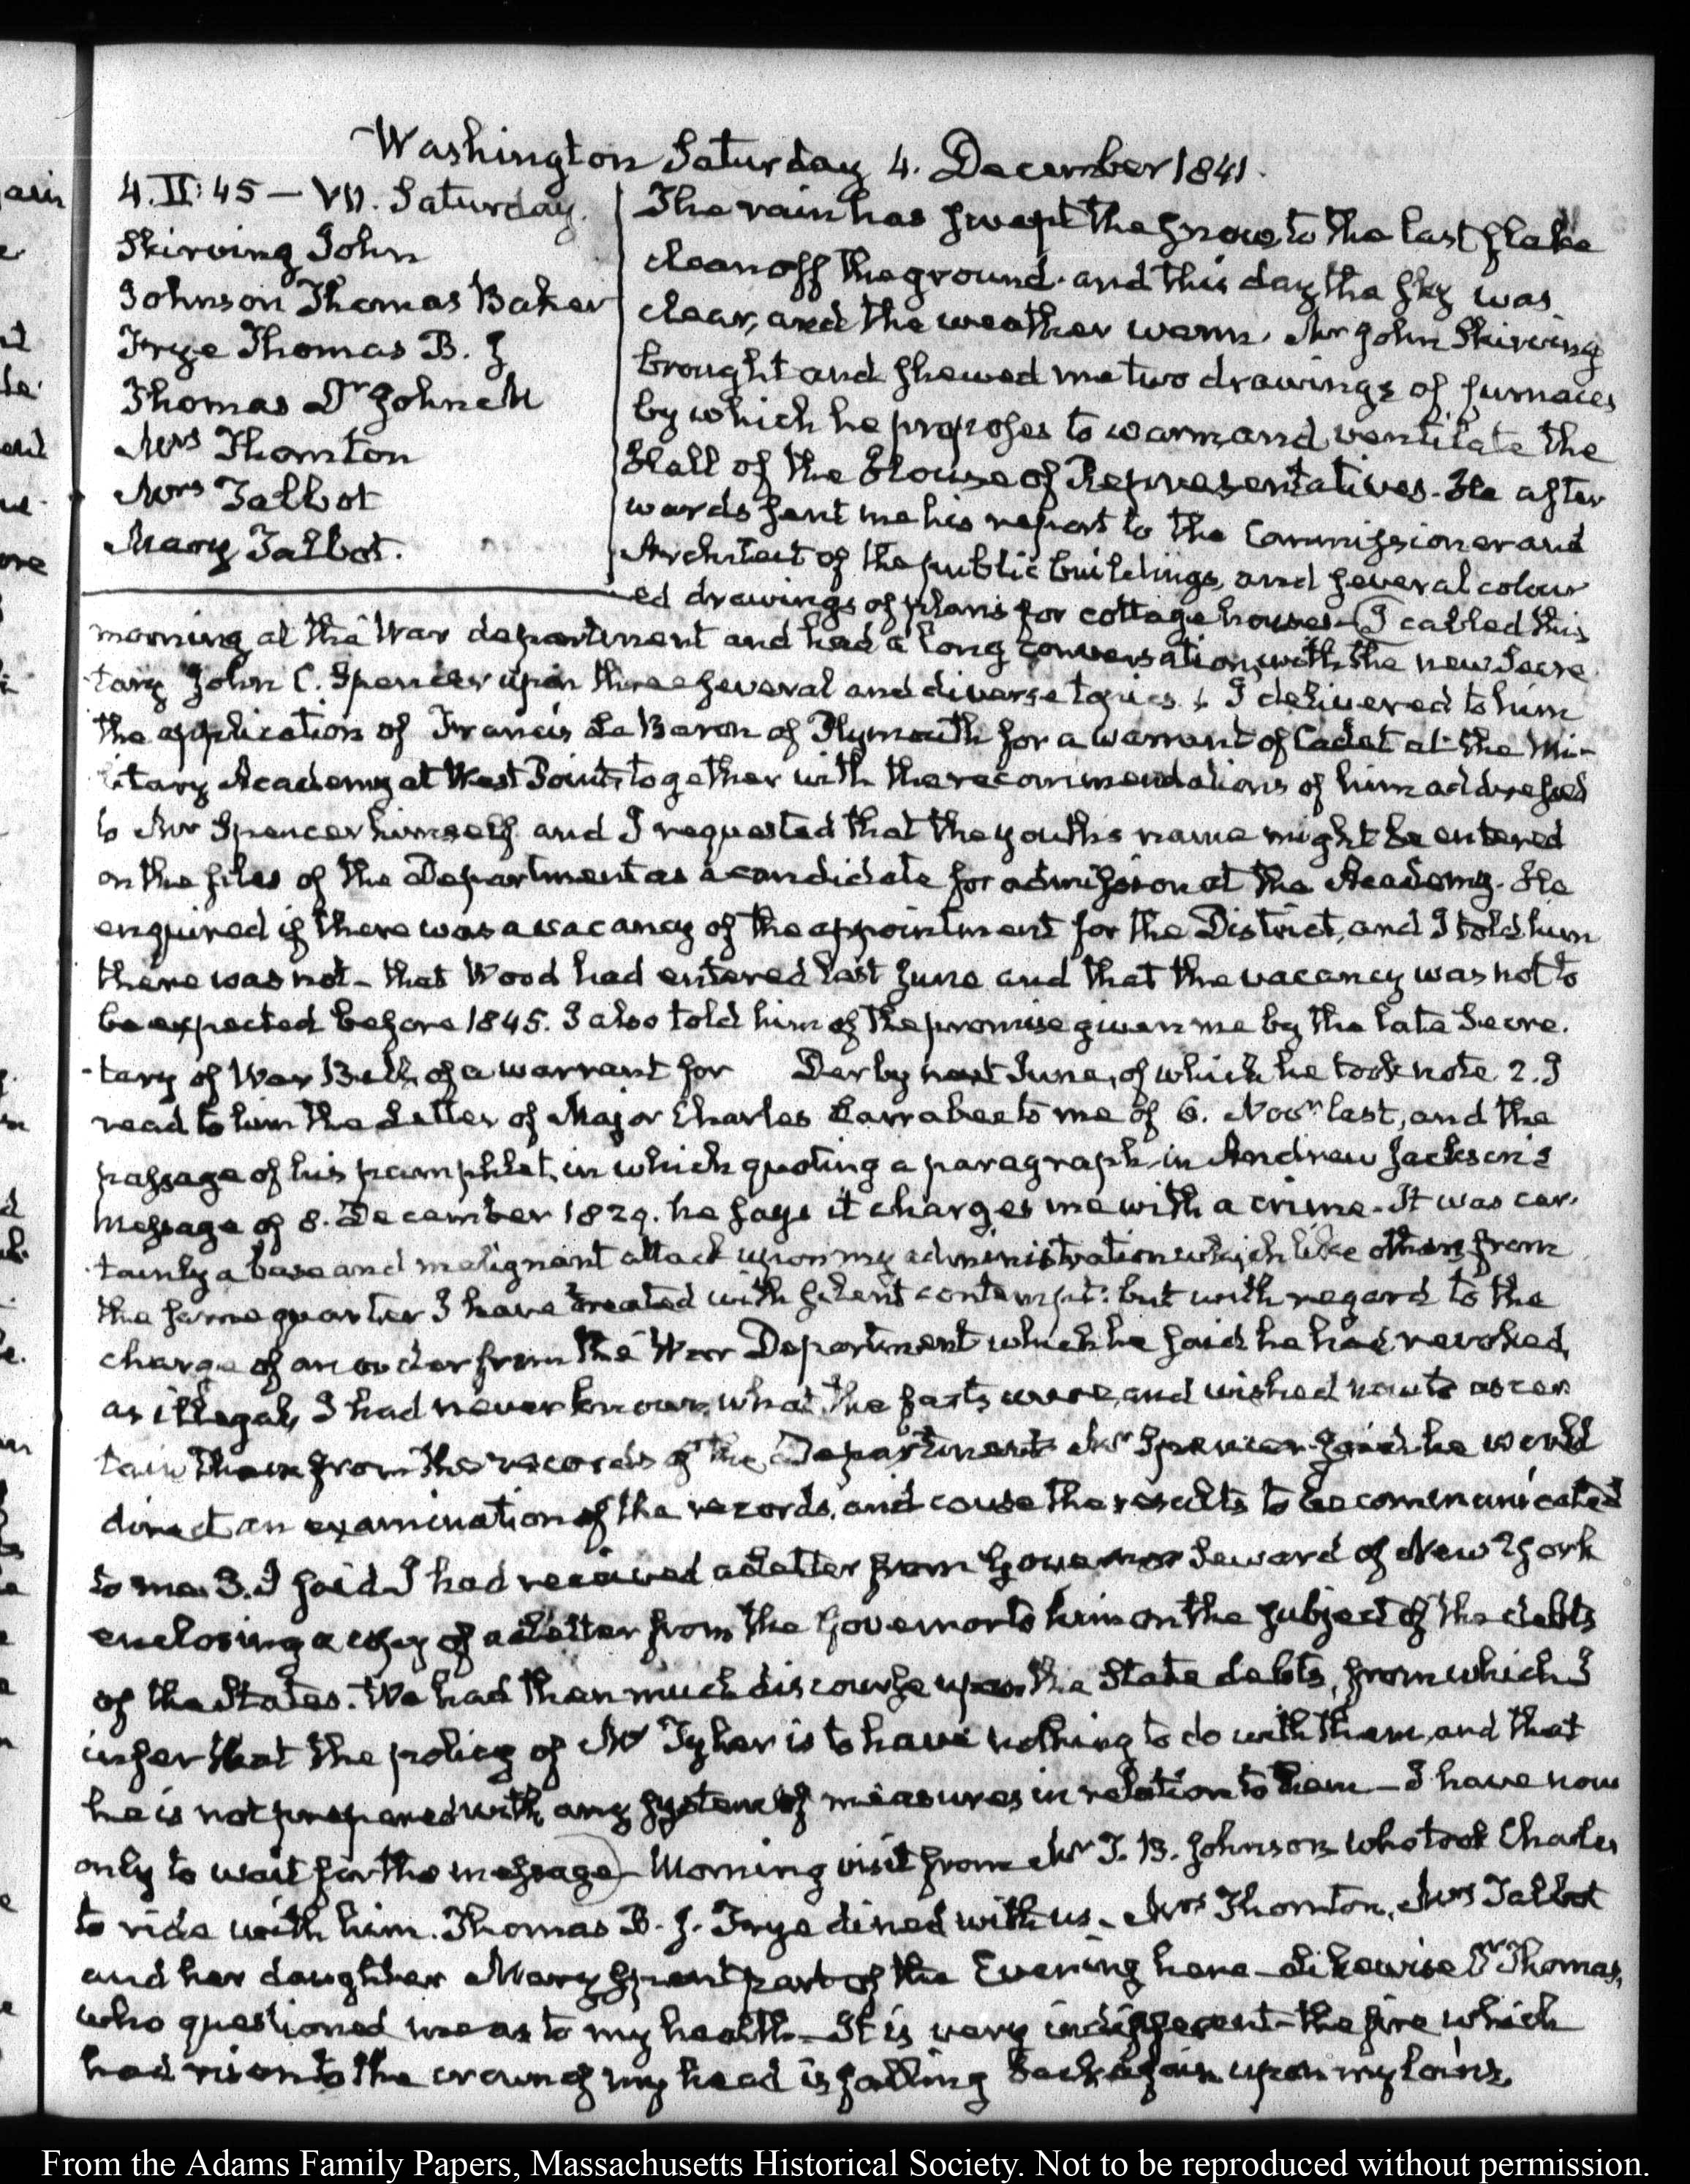 Washington Saturday 4. December 1841.
4. II: 45 — VII. Saturday.
Skirving John
Johnson Thomas Baker
Frye Thomas B. J
Thomas Dr John M
Mrs Thornton
Mrs Talbot
Mary Talbot.
The rain has swept the snow, to the last flake
clean off the ground. and this day the sky was
clear, and the weather warm. Mr John Skirving
brought and shewed me two drawings of furnaces
by which he proposes to warm and ventilate the
Hall of the House of Representatives. He after
wards sent me his report to the Commissioner and
Architect of the public buildings, and several colour
ed drawings of plans for cottage houses — I called this
morning at the War department and had a long conversation with the new Secre
tary John C. Spencer upon three several and diverse topics. 1 I delivered to him
the application of Francis LeBaron of Plymouth for a warrant of Cadet at the Mi-
litary Academy at West Point, together with the recommendations of him addressed
to Mr Spencer himself and I requested that the youth's name might be entered
on the files of the Department as a candidate for admission at the Academy. He
enquired if there was a vacancy of the appointment for the District, and I told him
there was not — that Wood had entered last June and that the vacancy was not to
be expected before 1845. I also told him of the promise given me by the late Secre.
-tary of War Bell, of a warrant for Derby next June, of which he took note 2. I
read to him the Letter of Major Charles Larrabee to me of 6. Novr last, and the
passage of his pamphlet, in which quoting a paragraph in Andrew Jackson's
Message of 8. December 1829. he says it charges me with a crime. It was cer.
-tainly a base and malignant attack upon my administration which like others from
the same quarter I have treated with silent contempt: but with regard to the
charge of an order from the War Department which he said he had revoked,
as illegal, I had never known what the facts were, and wished now to ascer
tain them from the records of the Department Mr Spencer said he would
direct an examination of the records, and cause the results to be communicated
to me. 3. I said I had received a Letter from Governor Seward of New York
enclosing a copy of a Letter from the Governor to him on the subject of the debts
of the States. We had then much discourse upon the State debts, from which I
infer that the policy of Mr Tyler is to have nothing to do with them, and that
he is not prepared with any system of measures in relation to them — I have now
only to wait for the message) — Morning visit from Mr T. B. Johnson who took Charles
to ride with him. Thomas B. J. Frye dined with us. Mrs Thornton, Mrs Talbot
and her daughter Mary spent part of the Evening here — Likewise Dr Thomas,
who questioned me as to my health — It is very indifferent — the fire which
had risen to the crown of my head is falling back again upon my loins.
From the Adams Family Papers, Massachusetts Historical Society. Not to be reproduced without permission.